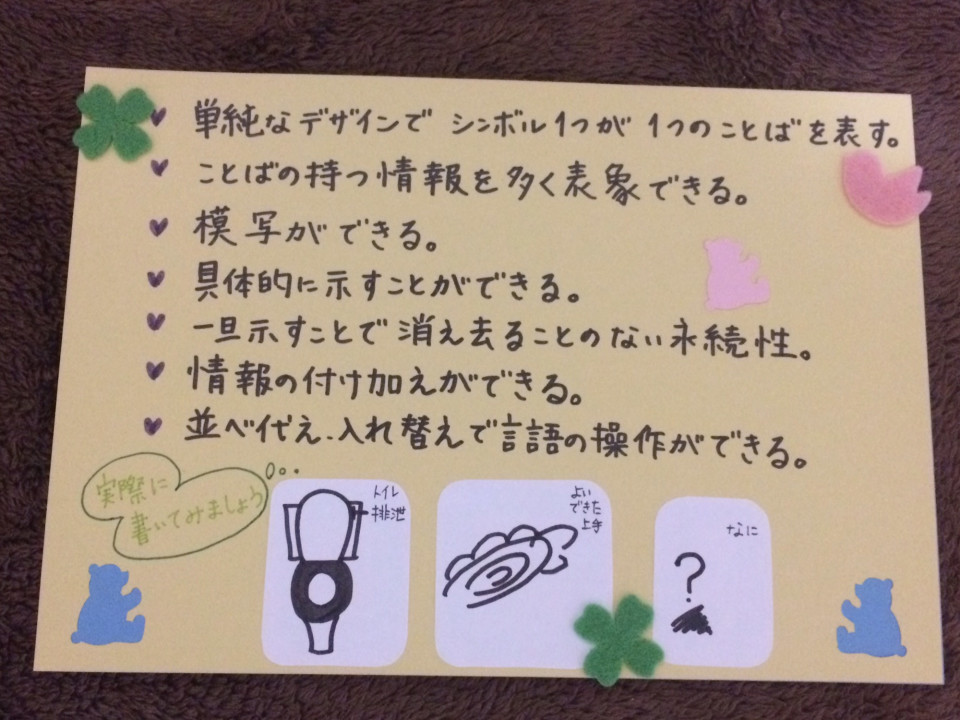 単純なデザインで シンボル1つが 1つのことばを表す。
ことばの持つ情報を多く表象できる。
模写ができる。
具体的に示すことができる。
一旦示すことで消え去ることのない永続性。
情報の付け加えができる。
並べ代え、入れ替えで言語の操作ができる。
実際に
書いてみましょう
トイレ
排泄
よい
できた
上手
なに
?